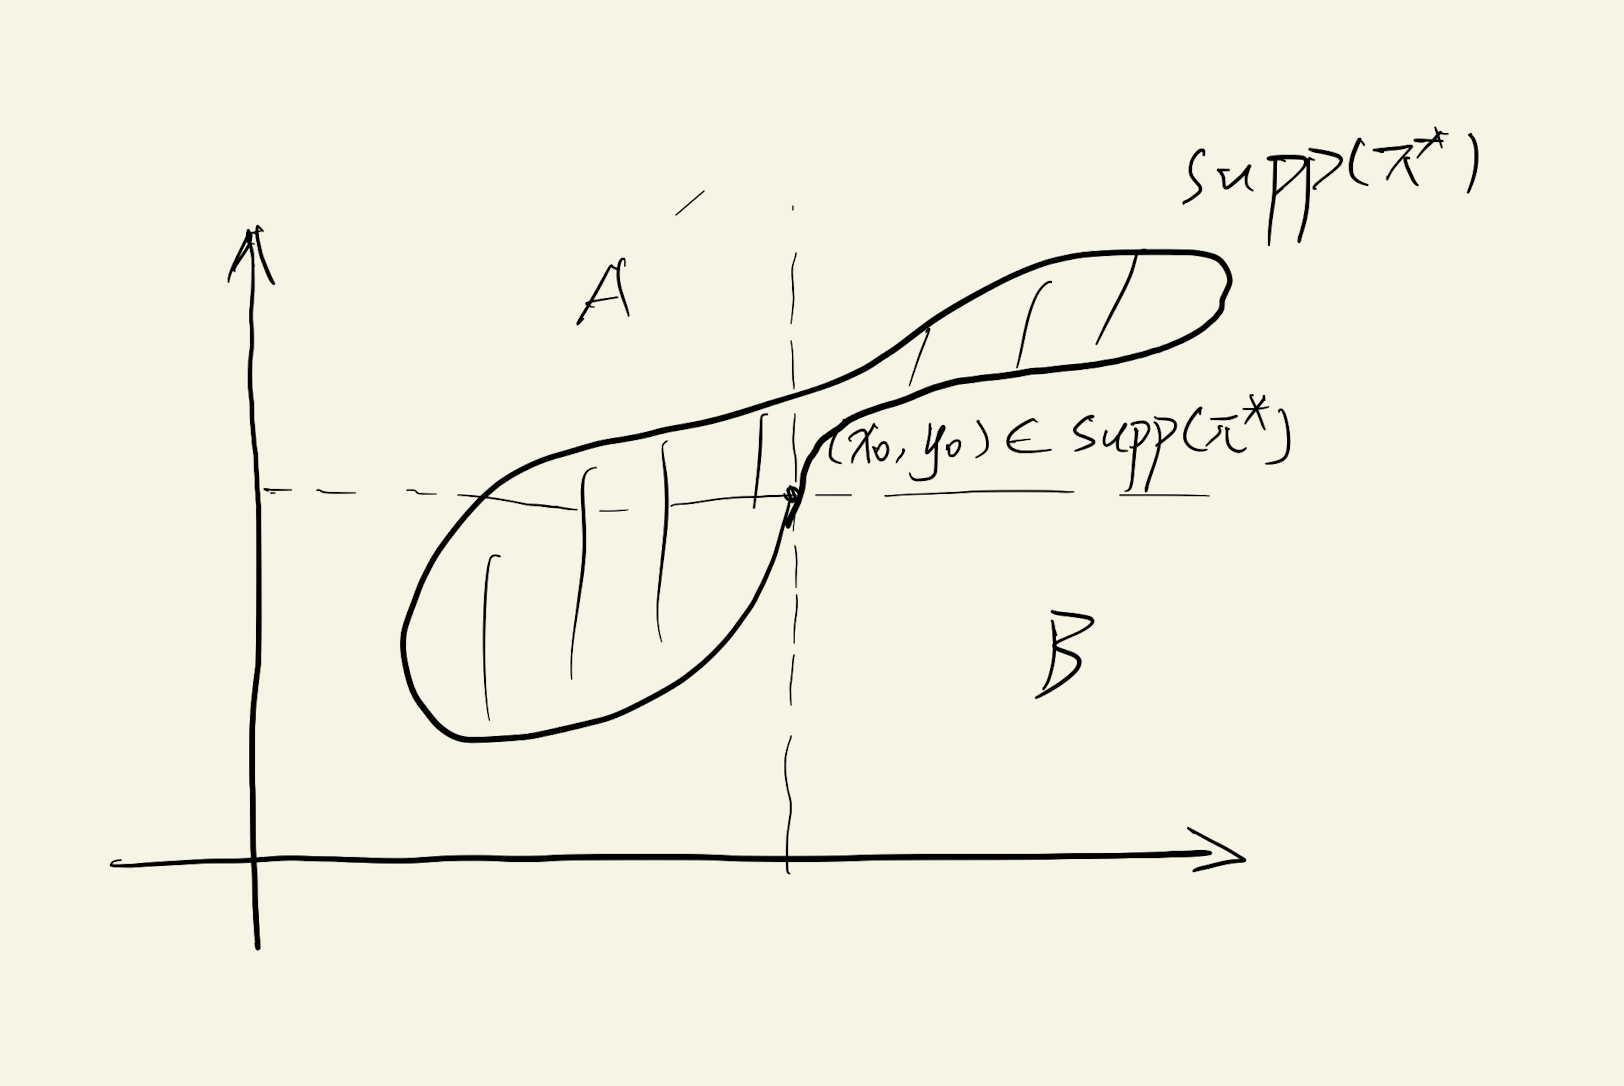 supp(π*)
A
(x₀, y₀) ∈ supp(π*)
B